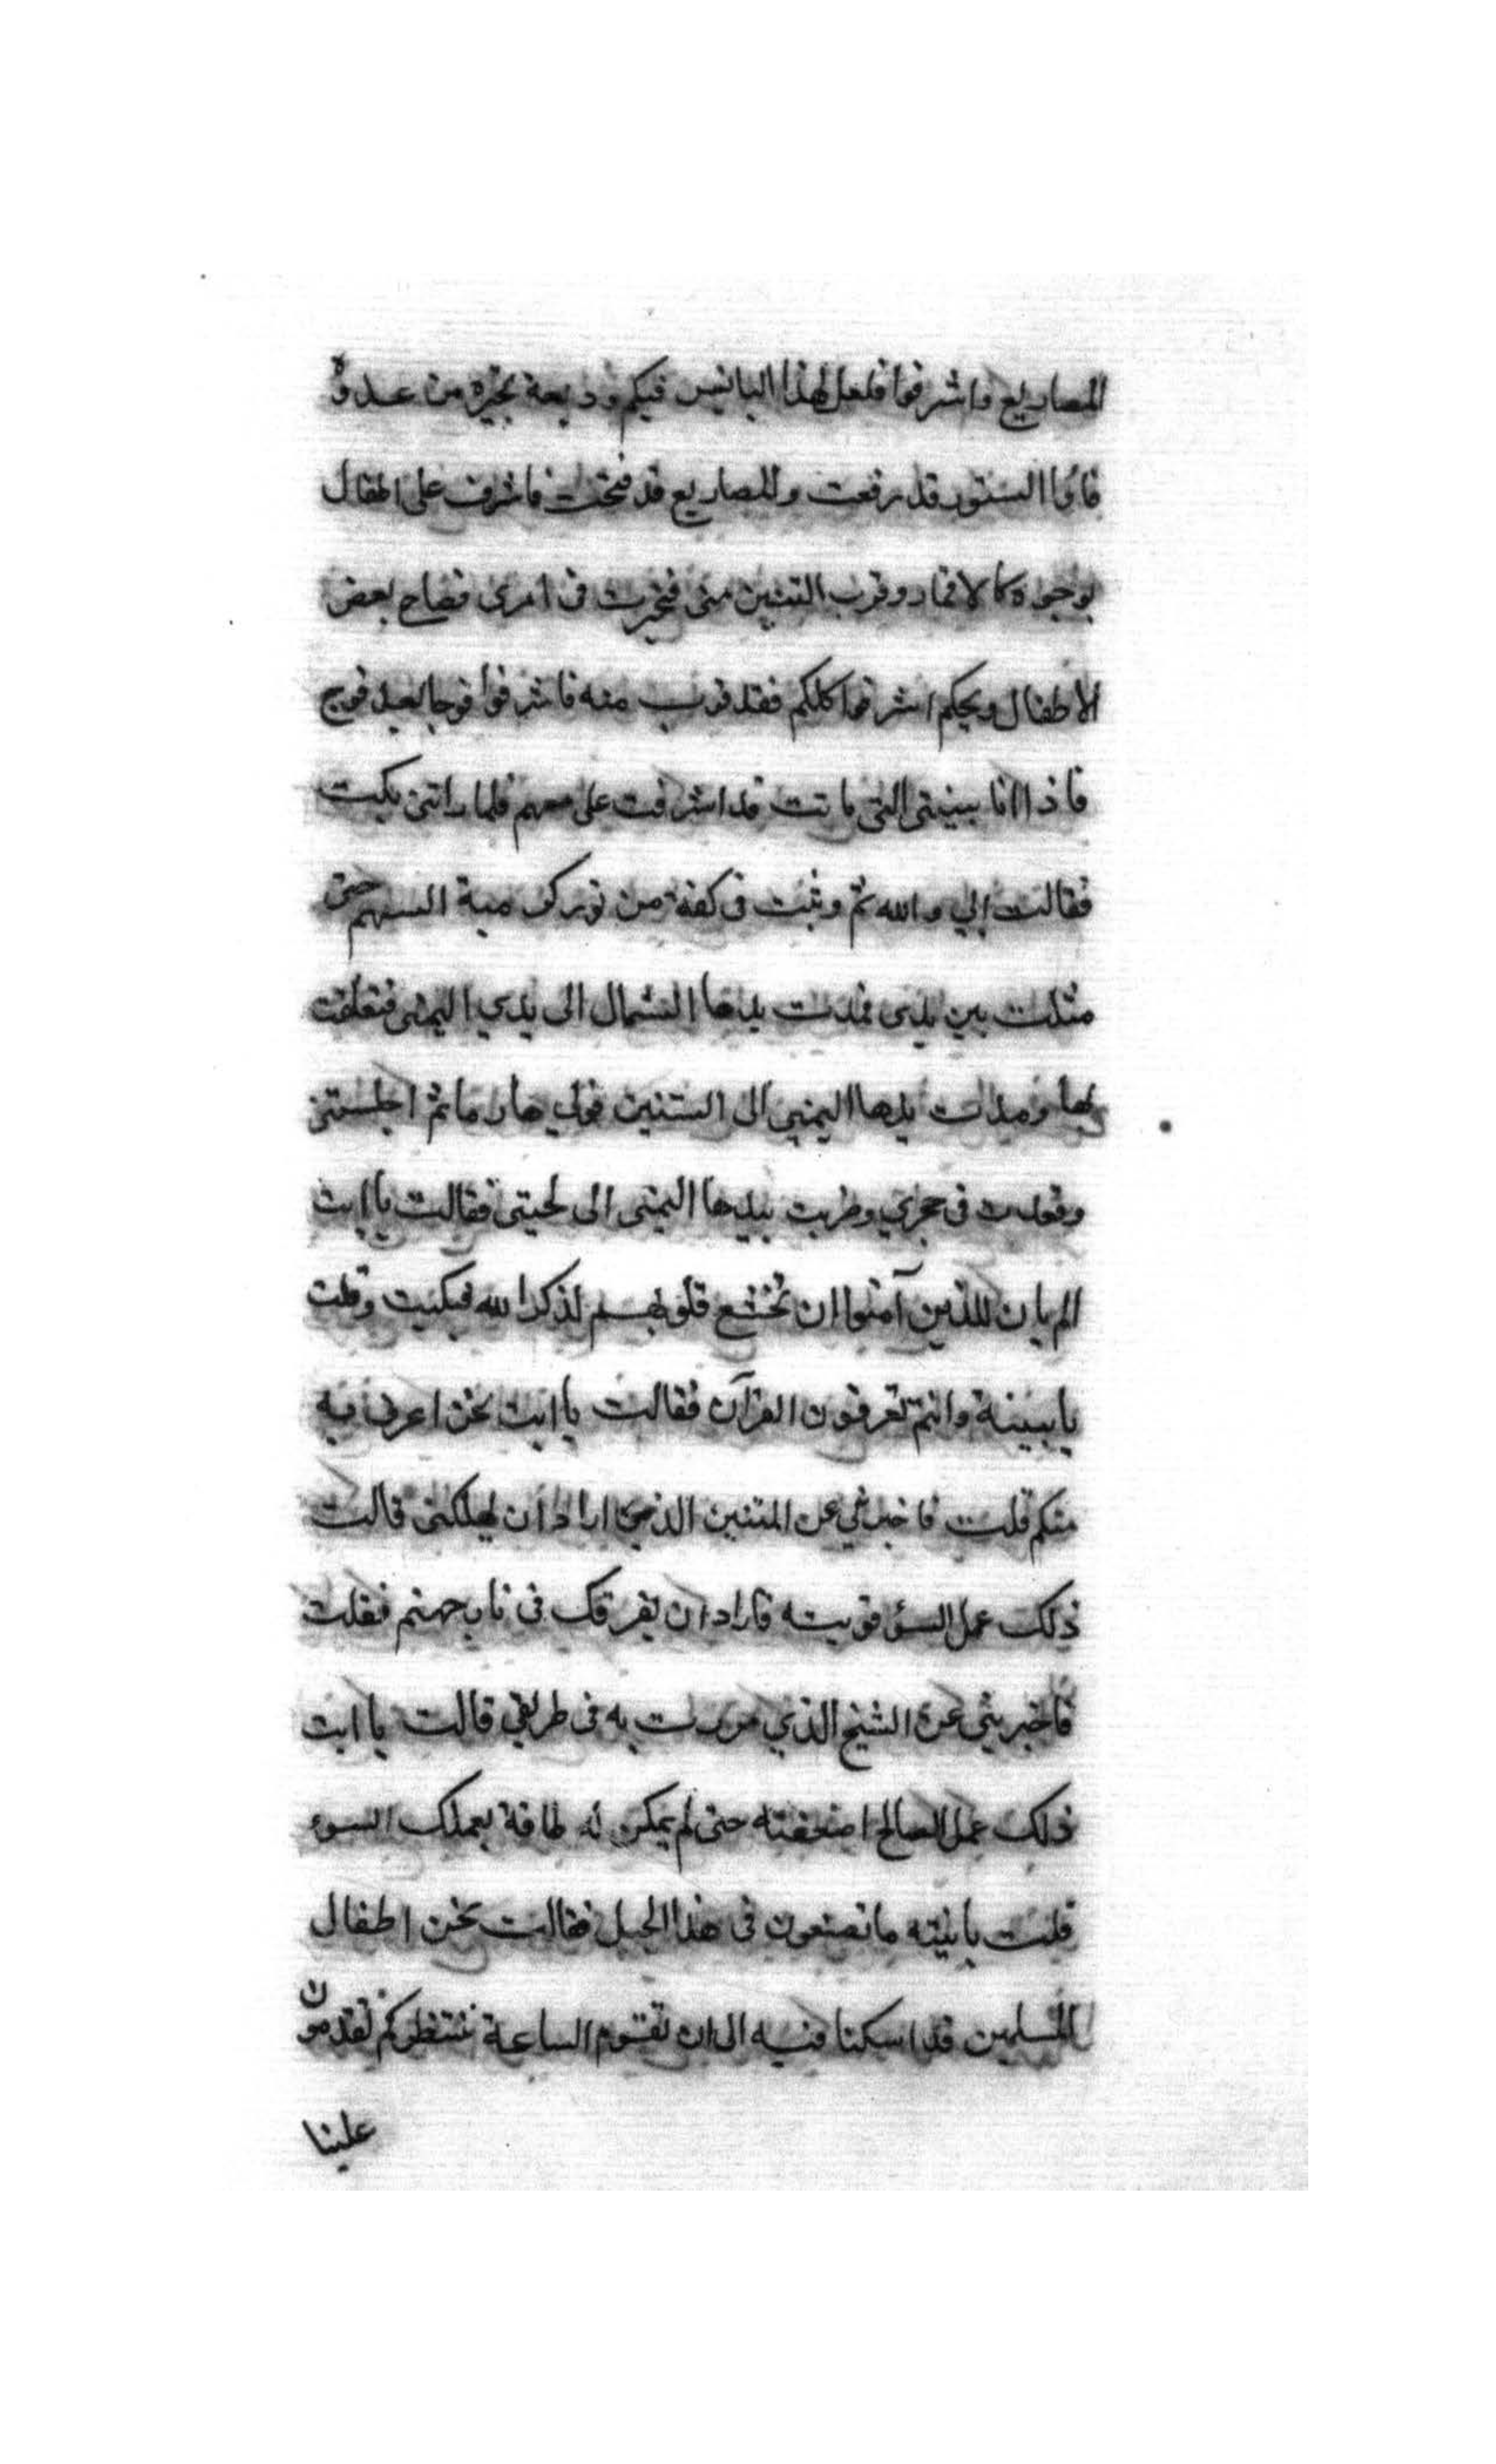 المصاريع واشرفوا فلعل لهذا البائس فيكم وديعة تجيره من عدوه
فاذا الستور قد رفعت والمصاريع قد فتحت فاشرف على اطفال
بوجوه كالاقمار وقرب التنين منى فتحيرت فى امرى فصاح بعض
الاطفال ويحكم اشرفوا كلكم فقد قرب منه فاشرفوا فوجا بعد فوج
فاذا انا ببينتى التى ماتت قد اشرفت على معهم فلما راتنى بكت
فقالت ابي والله ثم وثبت فى كفة من نور كرمية السهم حتى
مثلت بين يدى فمدت يدها الشمال الى يدي اليمنى فتعلقت
بها ومدت يدها اليمنى الى التنين فولى هاربا ثم اجلستنى
وقعدت فى حجري وضربت بيدها اليمنى الى لحيتى فقالت يا ابت
الم يان للذين آمنوا ان تخشع قلوبهم لذكر الله فبكيت وقلت
يا ببينة وانتم تعرفون القرآن فقالت يا ابت نحن اعرف به
منكم قلت فاخبرينى عن التنين الذى اراد ان يهلكنى قالت
ذلك عمل السؤ قويته فاراد ان يغرقك فى نار جهنم فقلت
فاخبرينى عن الشيخ الذي مررت به فى طريقي قالت يا ابت
ذلك عمل الصالح اضعفته حتى لم يمكن له طاقة بعملك السوء
قلت يا بنيته ما تصنعون فى هذا الجبل فقالت نحن اطفال
المسلمين قد اسكنا فيه الى ان تقوم الساعة ننتظركم تقدمون
علينا